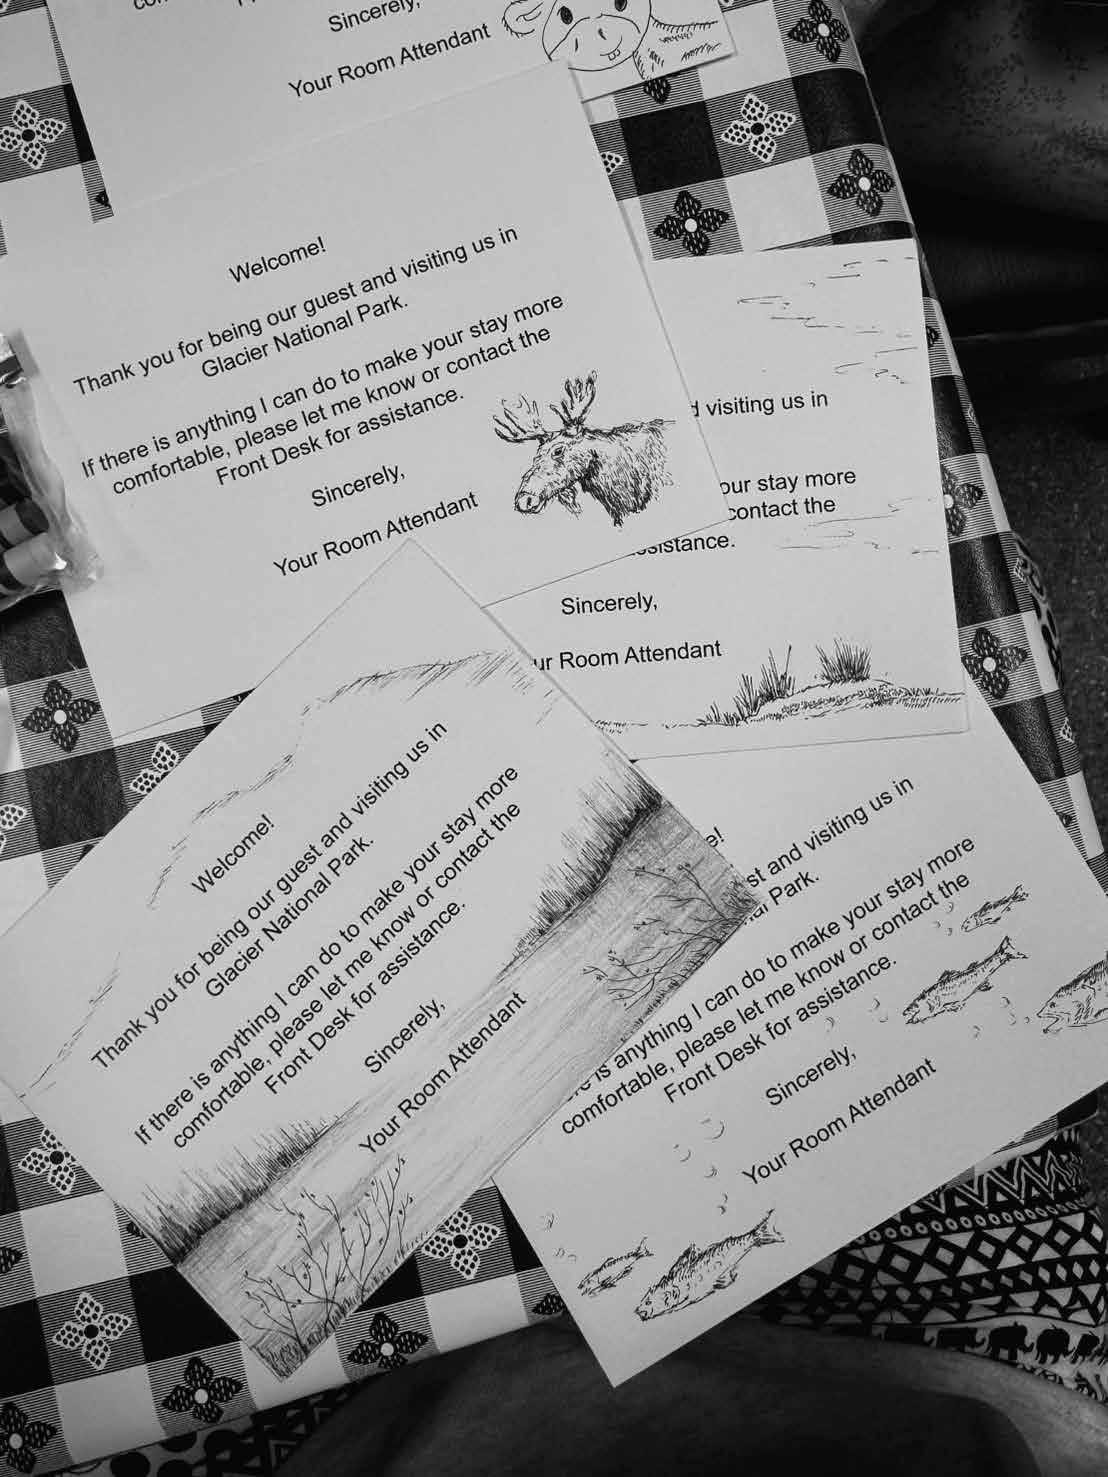 Sincerely,
Your Room Attendant
Welcome!
Thank you for being our guest and visiting us in
Glacier National Park.
If there is anything I can do to make your stay more
comfortable, please let me know or contact the
Front Desk for assistance.
Sincerely,
Your Room Attendant
visiting us in
our stay more
contact the
assistance.
Sincerely,
ur Room Attendant
Welcome!
Thank you for being our guest and visiting us in
Glacier National Park.
If there is anything I can do to make your stay more
comfortable, please let me know or contact the
Front Desk for assistance.
Sincerely,
Your Room Attendant
e!
st and visiting us in
al Park.
re is anything I can do to make your stay more
comfortable, please let me know or contact the
Front Desk for assistance.
Sincerely,
Your Room Attendant